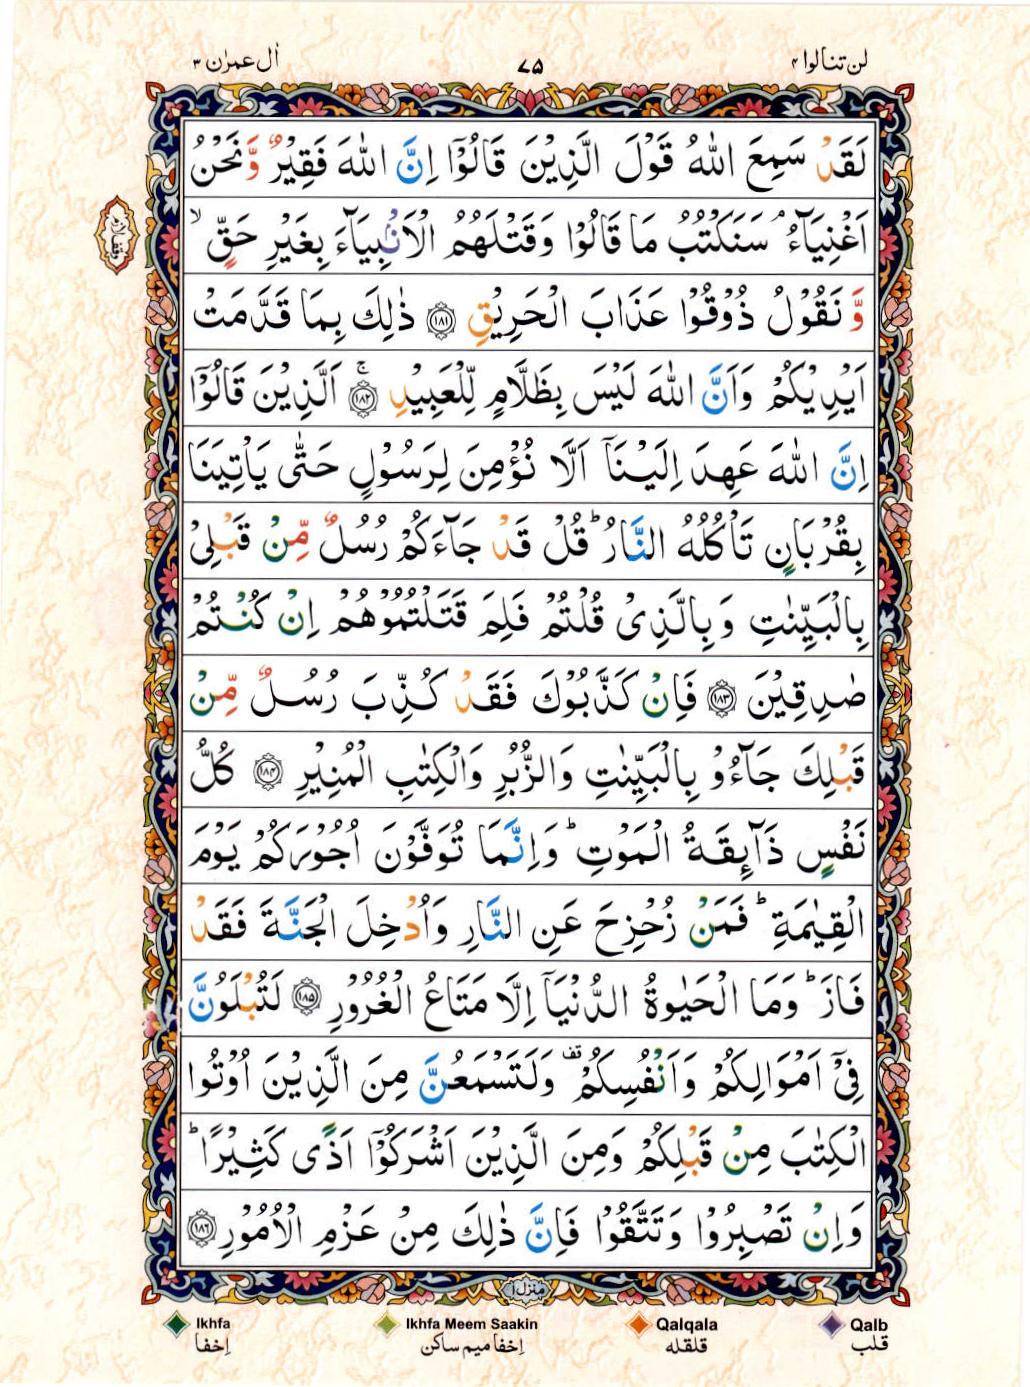 لن تنالوا ۴
۷۵
اٰل عمرٰن ۳
لَقَدْ سَمِعَ اللّٰهُ قَوْلَ الَّذِيْنَ قَالُوْٓا اِنَّ اللّٰهَ فَقِيْرٌ وَّنَحْنُ
اَغْنِيَآءُ ۘ سَنَكْتُبُ مَا قَالُوْا وَقَتْلَهُمُ الْاَنْۢبِيَآءَ بِغَيْرِ حَقٍّ ۙ
وَّ نَقُوْلُ ذُوْقُوْا عَذَابَ الْحَرِيْقِ ۝۱۸۱ ذٰلِكَ بِمَا قَدَّمَتْ
اَيْدِيْكُمْ وَاَنَّ اللّٰهَ لَيْسَ بِظَلَّامٍ لِّلْعَبِيْدِ ۝۱۸۲ۚ اَلَّذِيْنَ قَالُوْٓا
اِنَّ اللّٰهَ عَهِدَ اِلَيْنَآ اَلَّا نُؤْمِنَ لِرَسُوْلٍ حَتّٰى يَاْتِيَنَا
بِقُرْبَانٍ تَاْكُلُهُ النَّارُ ؕ قُلْ قَدْ جَآءَكُمْ رُسُلٌ مِّنْ قَبْلِيْ
بِالْبَيِّنٰتِ وَبِالَّذِيْ قُلْتُمْ فَلِمَ قَتَلْتُمُوْهُمْ اِنْ كُنْتُمْ
صٰدِقِيْنَ ۝۱۸۳ فَاِنْ كَذَّبُوْكَ فَقَدْ كُذِّبَ رُسُلٌ مِّنْ
قَبْلِكَ جَآءُوْ بِالْبَيِّنٰتِ وَالزُّبُرِ وَالْكِتٰبِ الْمُنِيْرِ ۝۱۸۴ كُلُّ
نَفْسٍ ذَآئِقَةُ الْمَوْتِ ؕ وَاِنَّمَا تُوَفَّوْنَ اُجُوْرَكُمْ يَوْمَ
الْقِيٰمَةِ ؕ فَمَنْ زُحْزِحَ عَنِ النَّارِ وَاُدْخِلَ الْجَنَّةَ فَقَدْ
فَازَ ؕ وَمَا الْحَيٰوةُ الدُّنْيَآ اِلَّا مَتَاعُ الْغُرُوْرِ ۝۱۸۵ لَتُبْلَوُنَّ
فِيْٓ اَمْوَالِكُمْ وَاَنْفُسِكُمْ ۟قف وَلَتَسْمَعُنَّ مِنَ الَّذِيْنَ اُوْتُوا
الْكِتٰبَ مِنْ قَبْلِكُمْ وَمِنَ الَّذِيْنَ اَشْرَكُوْٓا اَذًى كَثِيْرًا ؕ
وَاِنْ تَصْبِرُوْا وَتَتَّقُوْا فَاِنَّ ذٰلِكَ مِنْ عَزْمِ الْاُمُوْرِ ۝۱۸۶
وقف لازم
منزل ۱
Ikhfa
اِخفا
Ikhfa Meem Saakin
اِخفا میم ساکن
Qalqala
قلقله
Qalb
قلب